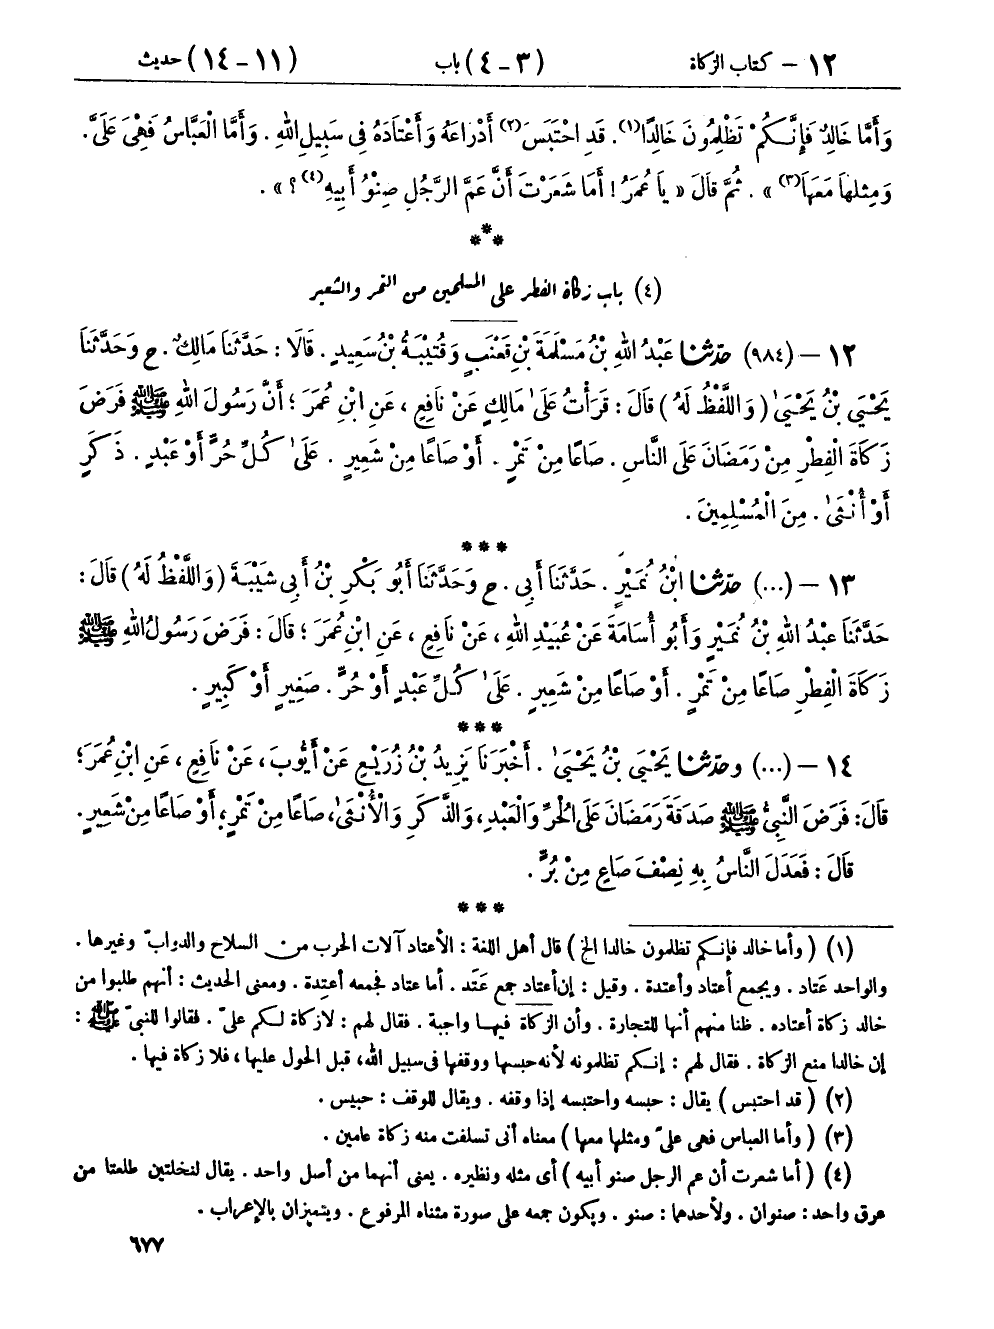 ١٢ – كتاب الزكاة (٣ – ٤) باب (١١ – ١٤) حديث
وَأَمَّا خَالِدٌ فَإِنَّكُمْ تَظْلِمُونَ خَالِدًا(١). قَدِ احْتَبَسَ(٢) أَدْرَاعَهُ وَأَعْتَادَهُ فِي سَبِيلِ اللهِ. وَأَمَّا الْعَبَّاسُ فَهِيَ عَلَيَّ.
وَمِثْلُهَا مَعَهَا(٣)». ثُمَّ قَالَ «يَا عُمَرُ! أَمَا شَعَرْتَ أَنَّ عَمَّ الرَّجُلِ صِنْوُ أَبِيهِ(٤)؟».
***
(٤) باب زكاة الفطر على المسلمين من التمر والشعير
١٢ – (٩٨٤) حدّثنا عَبْدُ اللهِ بْنُ مَسْلَمَةَ بْنِ قَعْنَبٍ وَقُتَيْبَةُ بْنُ سَعِيدٍ. قَالَا: حَدَّثَنَا مَالِكٌ. ح وَحَدَّثَنَا
يَحْيَى بْنُ يَحْيَىٰ (وَاللَّفْظُ لَهُ) قَالَ: قَرَأْتُ عَلَىٰ مَالِكٍ عَنْ نَافِعٍ، عَنِ ابْنِ عُمَرَ؛ أَنَّ رَسُولَ اللهِ ﷺ فَرَضَ
زَكَاةَ الْفِطْرِ مِنْ رَمَضَانَ عَلَى النَّاسِ. صَاعًا مِنْ تَمْرٍ. أَوْ صَاعًا مِنْ شَعِيرٍ. عَلَىٰ كُلِّ حُرٍّ أَوْ عَبْدٍ. ذَكَرٍ
أَوْ أُنْثَىٰ. مِنَ الْمُسْلِمِينَ.
***
١٣ – (...) حدّثنا ابْنُ نُمَيْرٍ. حَدَّثَنَا أَبِي. ح وَحَدَّثَنَا أَبُو بَكْرِ بْنُ أَبِي شَيْبَةَ (وَاللَّفْظُ لَهُ) قَالَ:
حَدَّثَنَا عَبْدُ اللهِ بْنُ نُمَيْرٍ وَأَبُو أُسَامَةَ عَنْ عُبَيْدِ اللهِ، عَنْ نَافِعٍ، عَنِ ابْنِ عُمَرَ؛ قَالَ: فَرَضَ رَسُولُ اللهِ ﷺ
زَكَاةَ الْفِطْرِ صَاعًا مِنْ تَمْرٍ. أَوْ صَاعًا مِنْ شَعِيرٍ. عَلَىٰ كُلِّ عَبْدٍ أَوْ حُرٍّ. صَغِيرٍ أَوْ كَبِيرٍ.
***
١٤ – (...) وحدّثنا يَحْيَى بْنُ يَحْيَىٰ. أَخْبَرَنَا يَزِيدُ بْنُ زُرَيْعٍ عَنْ أَيُّوبَ، عَنْ نَافِعٍ، عَنِ ابْنِ عُمَرَ؛
قَالَ: فَرَضَ النَّبِيُّ ﷺ صَدَقَةَ رَمَضَانَ عَلَى الْحُرِّ وَالْعَبْدِ، وَالذَّكَرِ وَالْأُنْثَىٰ، صَاعًا مِنْ تَمْرٍ، أَوْ صَاعًا مِنْ شَعِيرٍ.
قَالَ: فَعَدَلَ النَّاسُ بِهِ نِصْفَ صَاعٍ مِنْ بُرٍّ.
***
(١) (وأما خالد فإنكم تظلمون خالدا الخ) قال أهل اللغة: الأعتاد آلات الحرب من السلاح والدوابّ وغيرها.
والواحد عَتاد. ويجمع أعتاد وأعتدة. وقيل: إن أعتاد جمع عَتَد. أما عتاد فجمعه أعتِدة. ومعنى الحديث: أنهم طلبوا من
خالد زكاة أعتاده. ظنا منهم أنها للتجارة. وأن الزكاة فيها واجبة. فقال لهم: لا زكاة لكم علىّ. فقالوا للنبىّ ﷺ:
إن خالدا منع الزكاة. فقال لهم: إنكم تظلمونه لأنه حبسها ووقفها فى سبيل الله، قبل الحول عليها، فلا زكاة فيها.
(٢) (قد احتبس) يقال: حبسه واحتبسه إذا وقفه. ويقال للوقف: حبيس.
(٣) (وأما العباس فهى علىّ ومثلها معها) معناه أنى تسلفت منه زكاة عامين.
(٤) (أما شعرت أن عم الرجل صنو أبيه) أى مثله ونظيره. يعنى أنهما من أصل واحد. يقال لنخلتين طلعتا من
عرق واحد: صنوان. ولأحدهما: صنو. ويكون جمعه على صورة مثناه المرفوع. ويتميزان بالإعراب.
٦٧٧